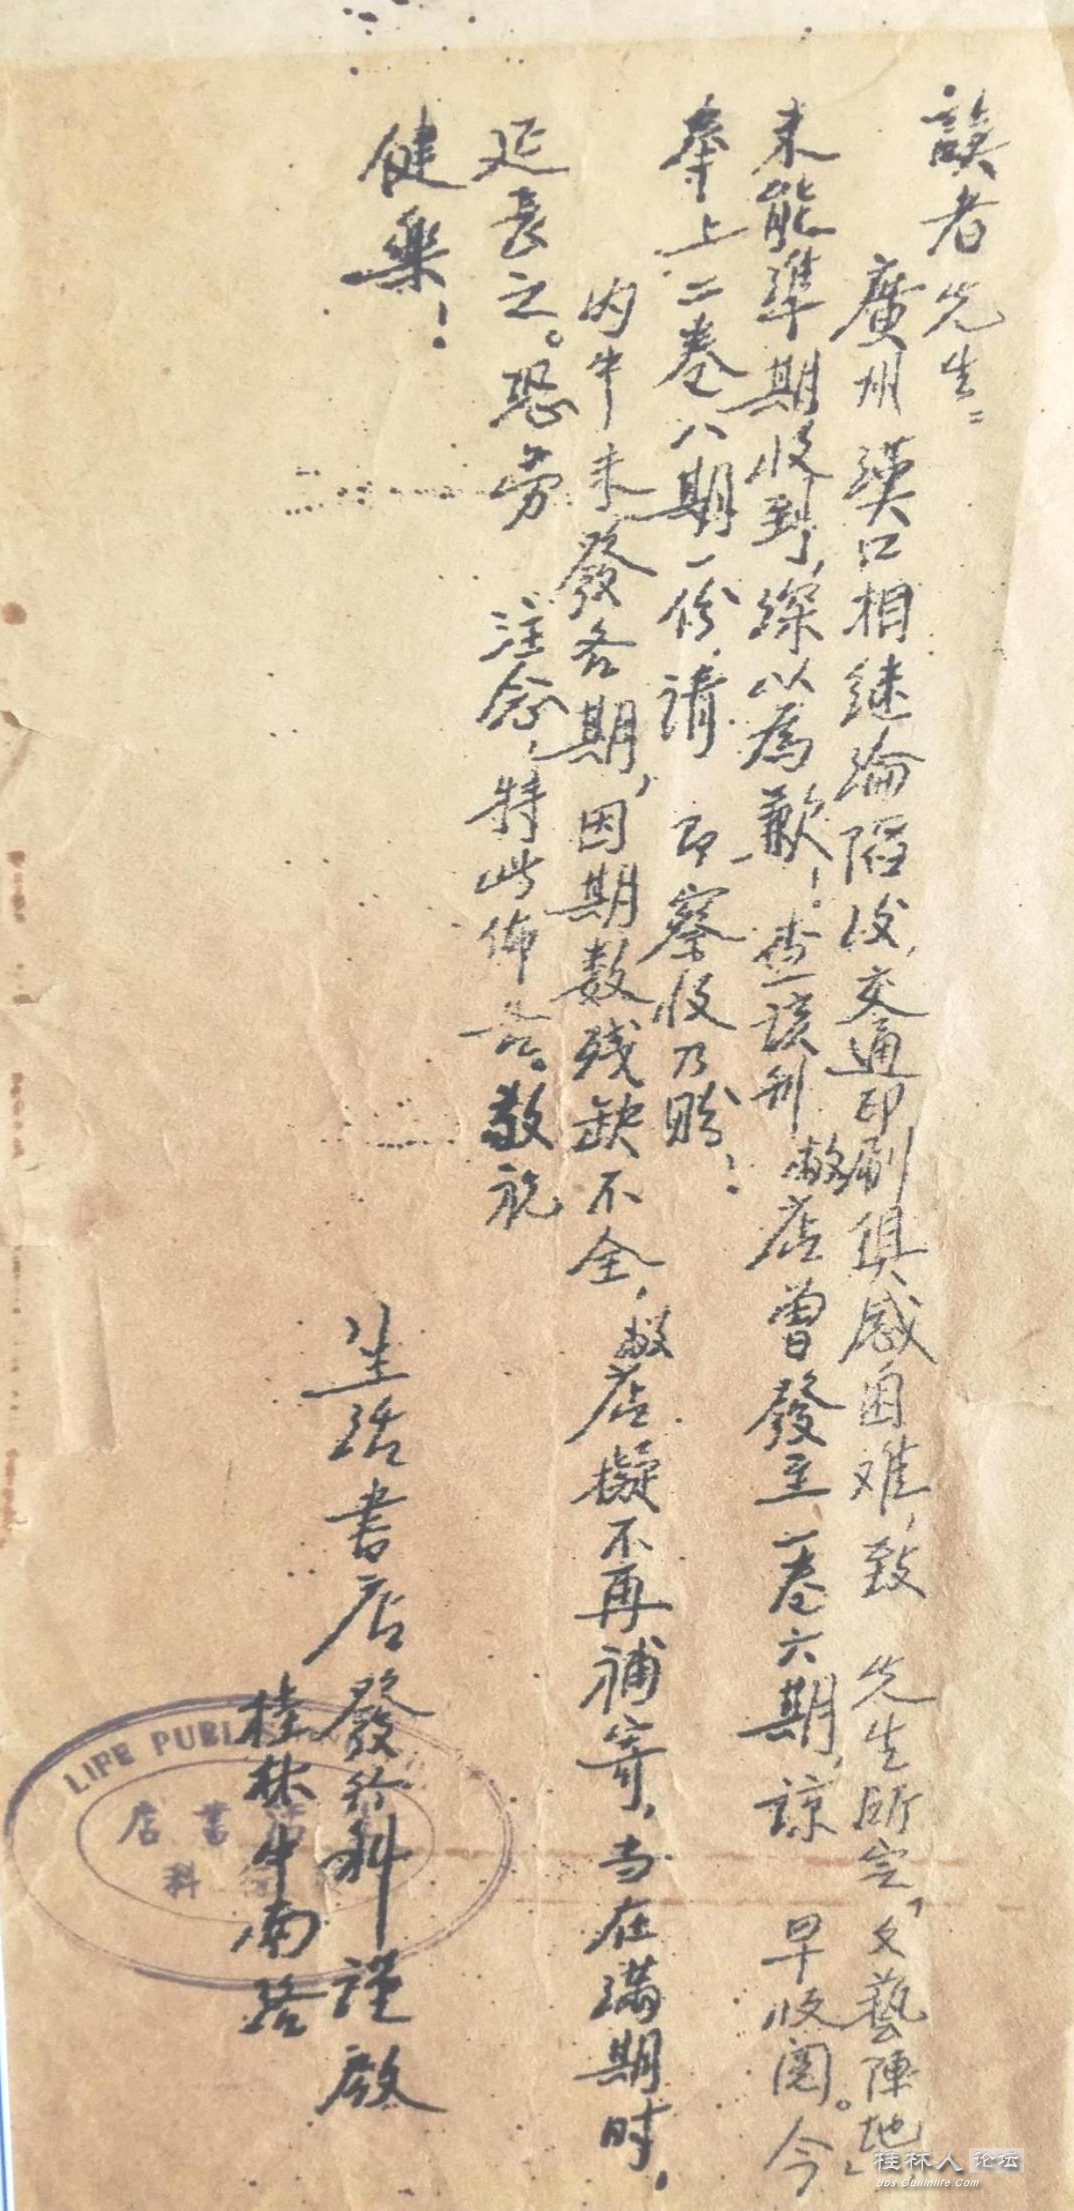 讀者先生：
廣州漢口相继淪陷後，交通印刷俱感困难，致 先生所定「文藝陣地」
未能準期收到，深以為歉！。查该刊敝店曾發至一卷六期，諒 早收閱。今
奉上二卷八期一份，请 即察收乃盼！
内中未發各期，因期数残缺不全，敝店擬不再補寄，当在满期时，
延長之。恐劳 注念，特此佈告。敬祝
健樂！
生活書店發行科謹啟
桂林中南路
LIFE PUBLIS
店書活
科
桂林人论坛
Bbs.Guilinlife.Com